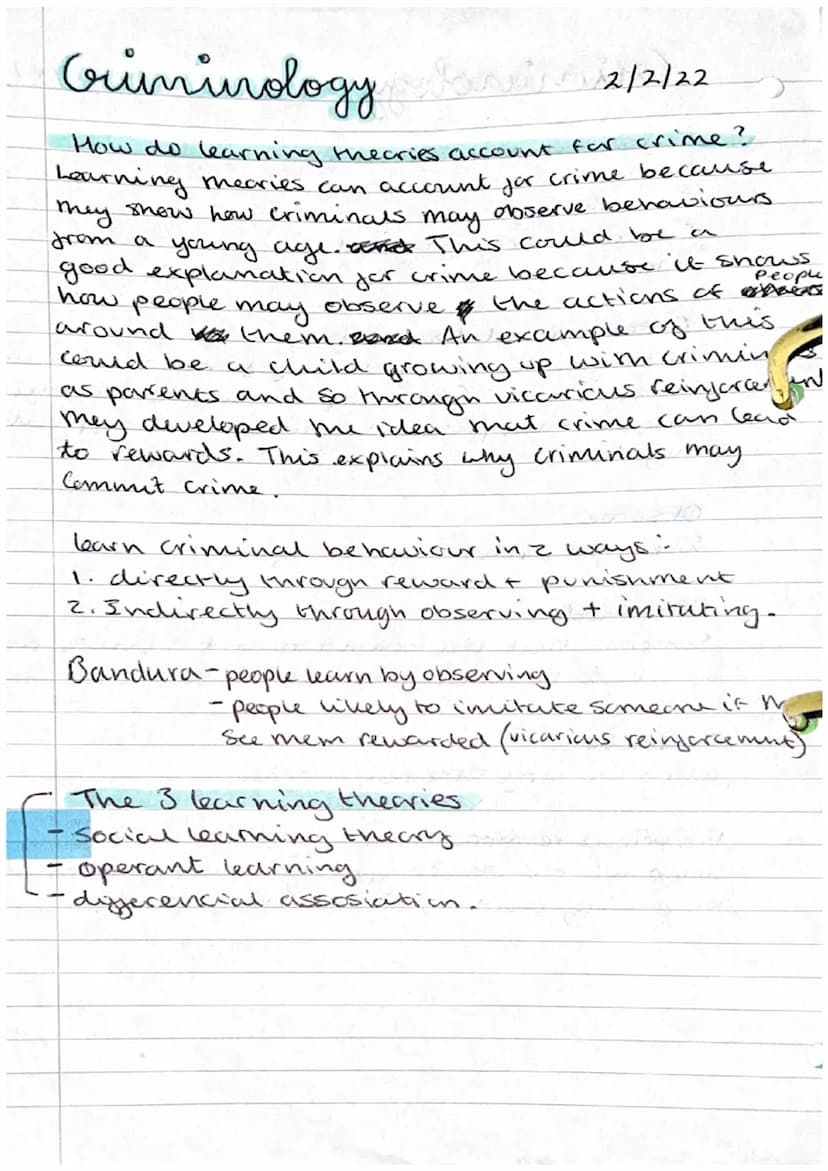 Criminology 2/2/22
How do learning theories account for crime?
Learning theories can account for crime because
they show how criminals may observe behaviours
from a young age. This could be a
good explanation for crime because it shows
how people may observe the actions of people
around them. An example of this
could be a child growing up with
as parents and so through vicarious
they developed the idea that crime can lead
to rewards. This explains why criminals may
commit crime.
learn criminal behaviour in 2 ways:
1. directly through reward + punishment
2. Indirectly through observing + imitating.
Bandura - people learn by observing
- people likely to imitate someone if
see them rewarded (vicarious reinforcement)
The 3 learning theories
- social learning theory
- operant learning
- differencial assosiation.